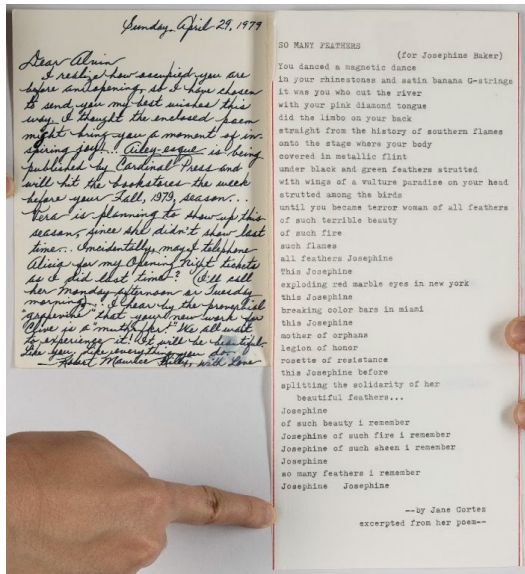 Sunday, April 29, 1979
Dear Alvin
I realize how occupied you are
before and opening, so I have chosen
to send you my best wishes this
way. I thought the enclosed poem
might bring you a moment of in-
spiring joy!... Ailey-esque is being
published by Cardinal Press and
will hit the bookstores the week
before your Fall, 1979, season...
Vera is planning to show up this
season, since she didn't show last
time... Incidentally, may I telephone
Alicia for my Opening Night tickets
as I did last time? I'll call
her Monday afternoon or Tuesday
morning... I hear by the proverbial
"grapevine" that your new work for
is a "muthafer." We all wait
to experience it! It will be beautiful
like you, like everything you do.
—Robert Maurice Riley, with Love
SO MANY FEATHERS
(for Josephine Baker)
You danced a magnetic dance
in your rhinestones and satin banana G-strings
it was you who cut the river
with your pink diamond tongue
did the limbo on your back
straight from the history of southern flames
onto the stage where your body
covered in metallic flint
under black and green feathers strutted
with wings of a vulture paradise on your head
strutted among the birds
until you became terror woman of all feathers
of such terrible beauty
of such fire
such flames
all feathers Josephine
This Josephine
exploding red marble eyes in new york
this Josephine
breaking color bars in miami
this Josephine
mother of orphans
legion of honor
rosette of resistance
this Josephine before
splitting the solidarity of her
beautiful feathers...
Josephine
of such beauty i remember
Josephine of such fire i remember
Josephine of such sheen i remember
Josephine
so many feathers i remember
Josephine Josephine
--by Jane Cortez
excerpted from her poem--